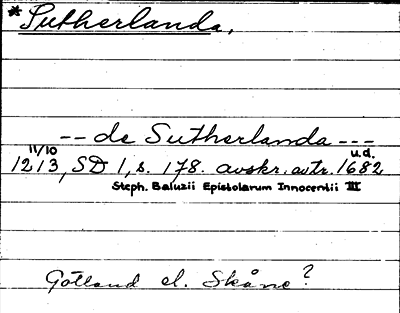 *Sutherlanda,
-- de Sutherlanda ---
11/10 u.d.
1213, SD 1, s. 178. avskr. avtr. 1682
Steph. Baluzii Epistolarum Innocentii III
Götland el. Skåne?